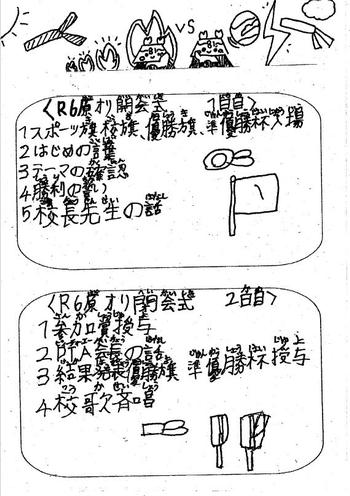 VS
〈R6原オリ開会式 1日目〉
1スポーツ旗、校旗、優勝旗、準優勝杯入場
2はじめの言葉
3テーマの確認
4勝利の誓い
5校長先生の話
〈R6原オリ閉会式 2日目〉
1参加賞授与
2PTA会長の話
3結果発表優勝旗 準優勝杯授与
4校歌斉唱